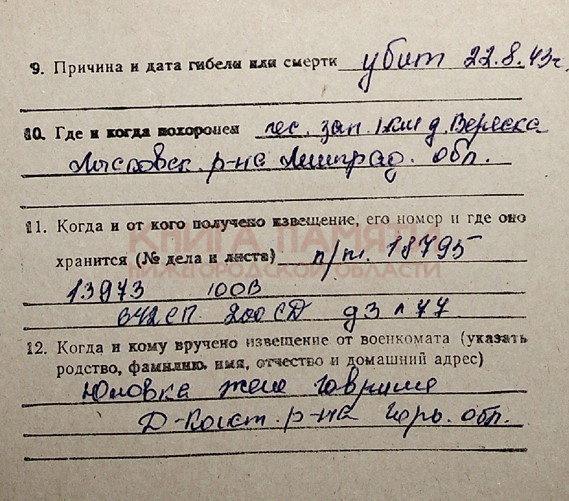 9. Причина и дата гибели или смерти убит 22.8.43г.
10. Где и когда похоронен сев. зап. 1 км д. Веряска
Лычковск. р-на Ленинград. обл.
11. Когда и от кого получено извещение, его номер и где оно
КНИГА ПАМЯТИ
хранится (№ дела и листа) п/п. 18795
НИЖЕГОРОДСКОЙ ОБЛАСТИ
13973
642 СП 200 СД д3 л 77
12. Когда и кому вручено извещение от военкомата (указать
родство, фамилию, имя, отчество и домашний адрес)
Юловка жене
Д-Конст. р-на Горь. обл.